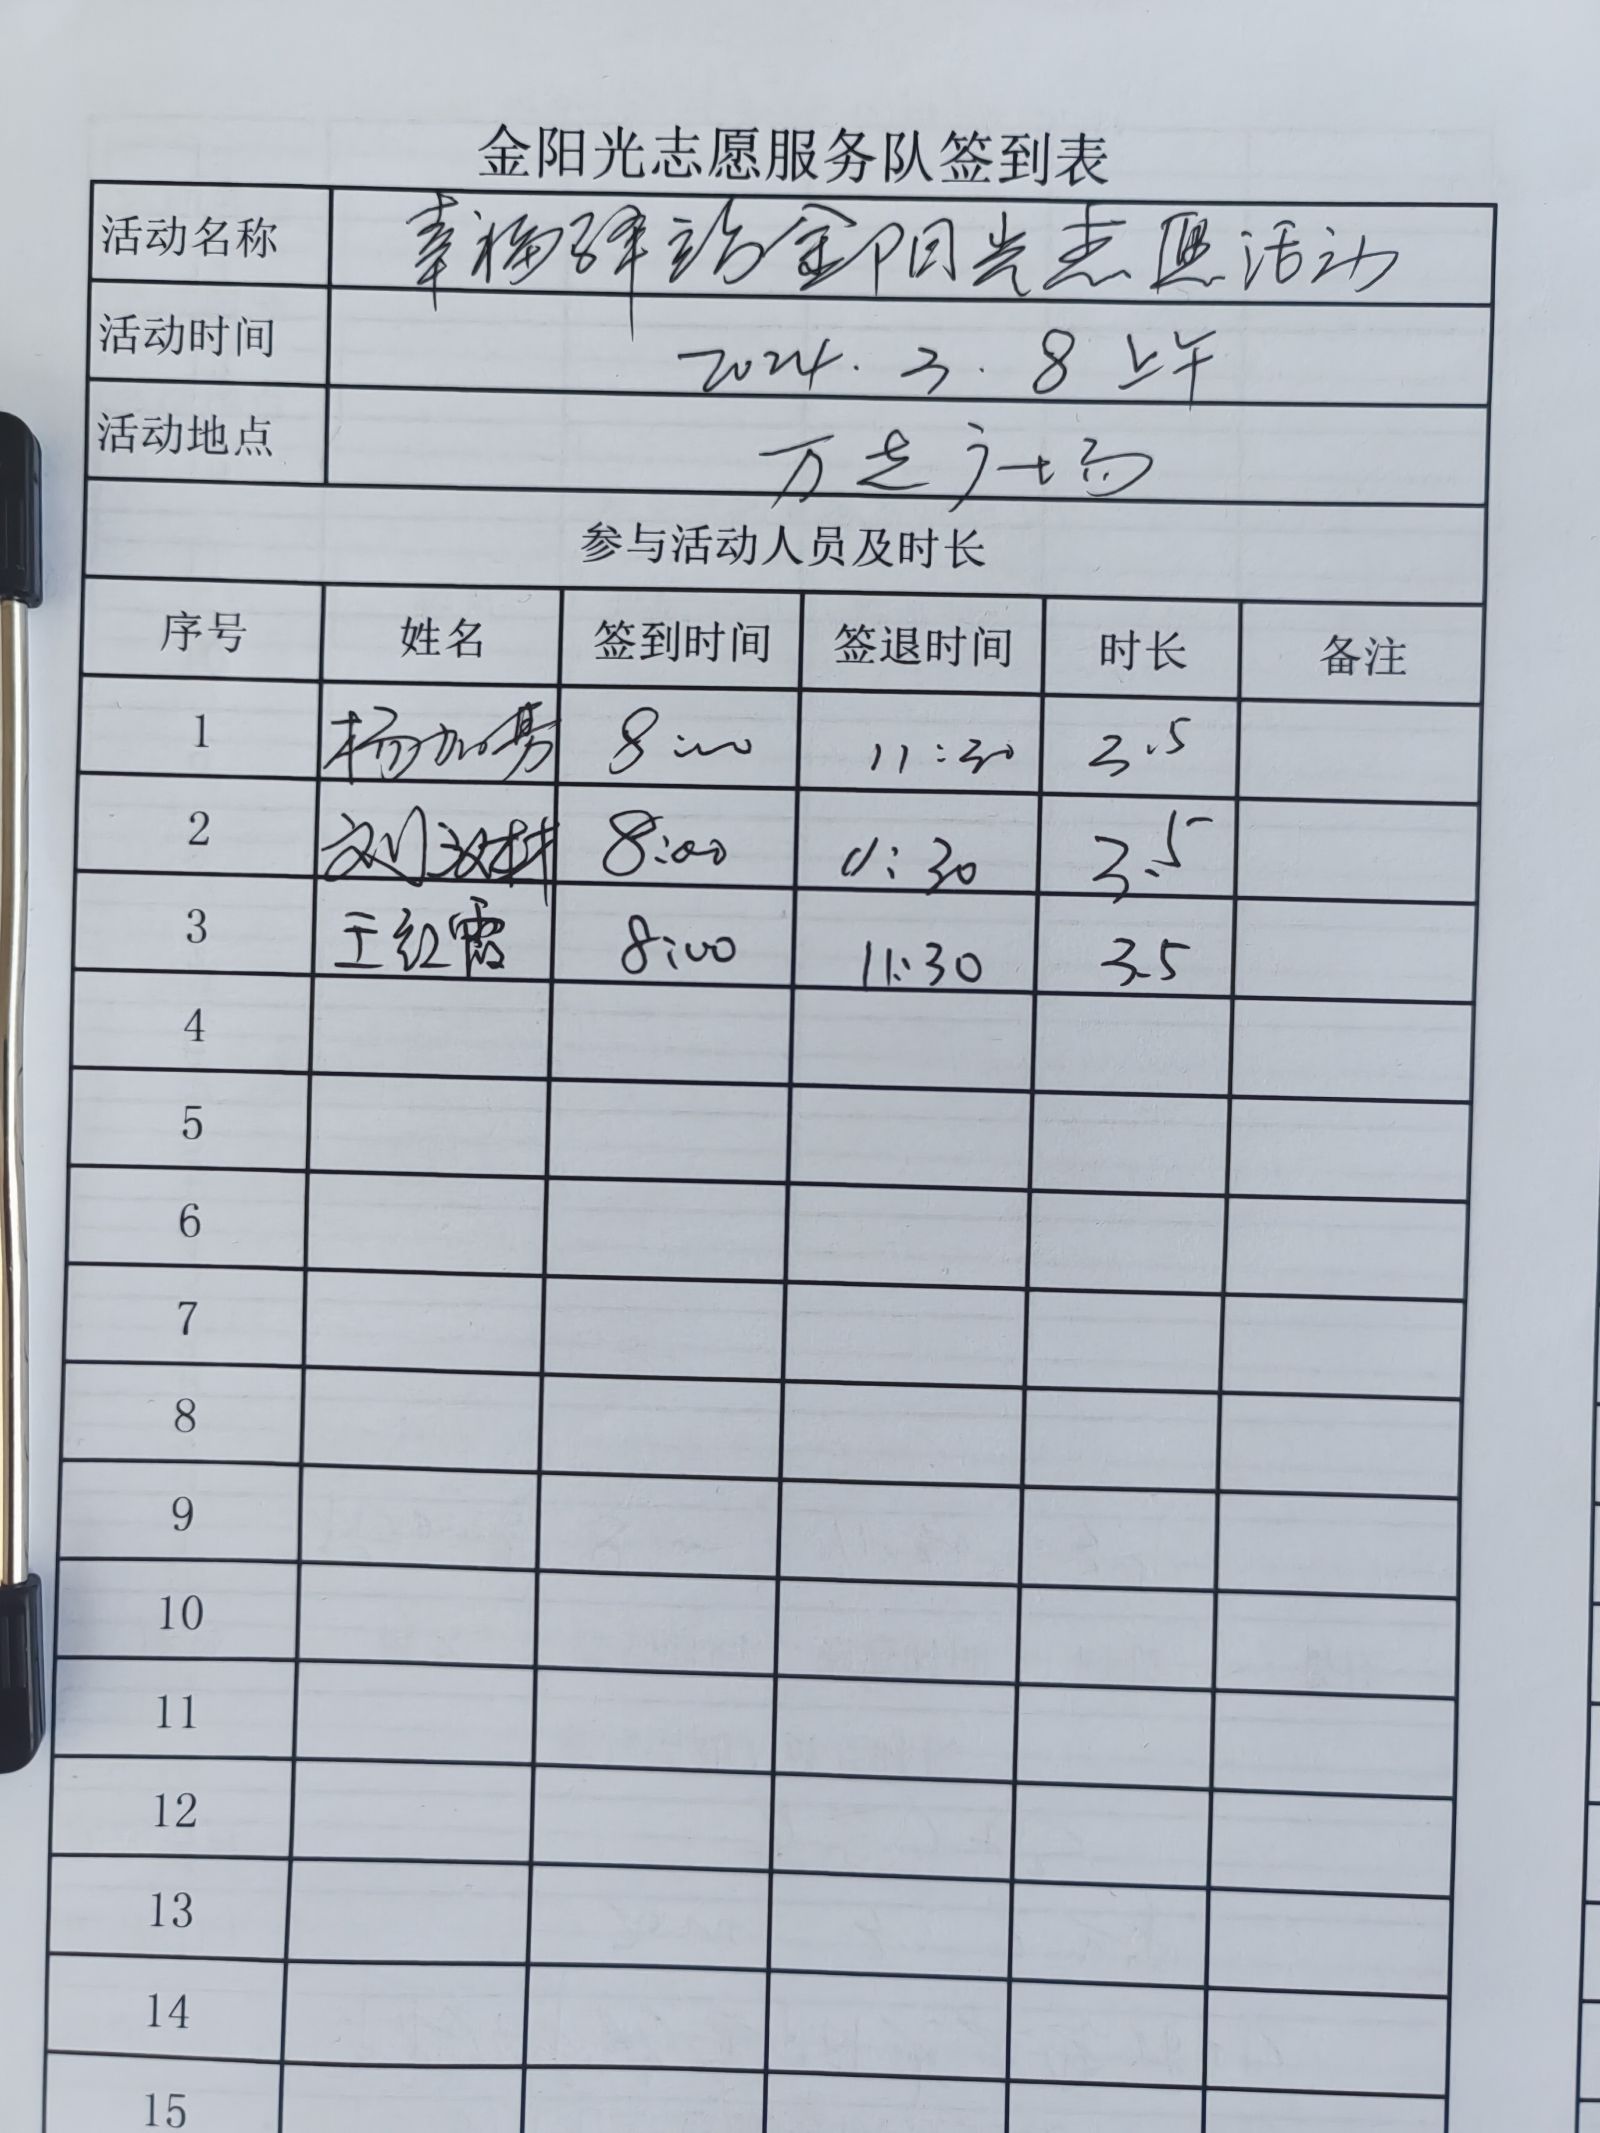 金阳光志愿服务队签到表
活动名称 幸福驿站金阳光志愿活动
活动时间 2024.3.8上午
活动地点 万达广场
参与活动人员及时长
序号 姓名 签到时间 签退时间 时长 备注
1 杨加勇 8:00 11:30 3.5
2 刘汉林 8:00 11:30 3.5
3 王红霞 8:00 11:30 3.5
4
5
6
7
8
9
10
11
12
13
14
15